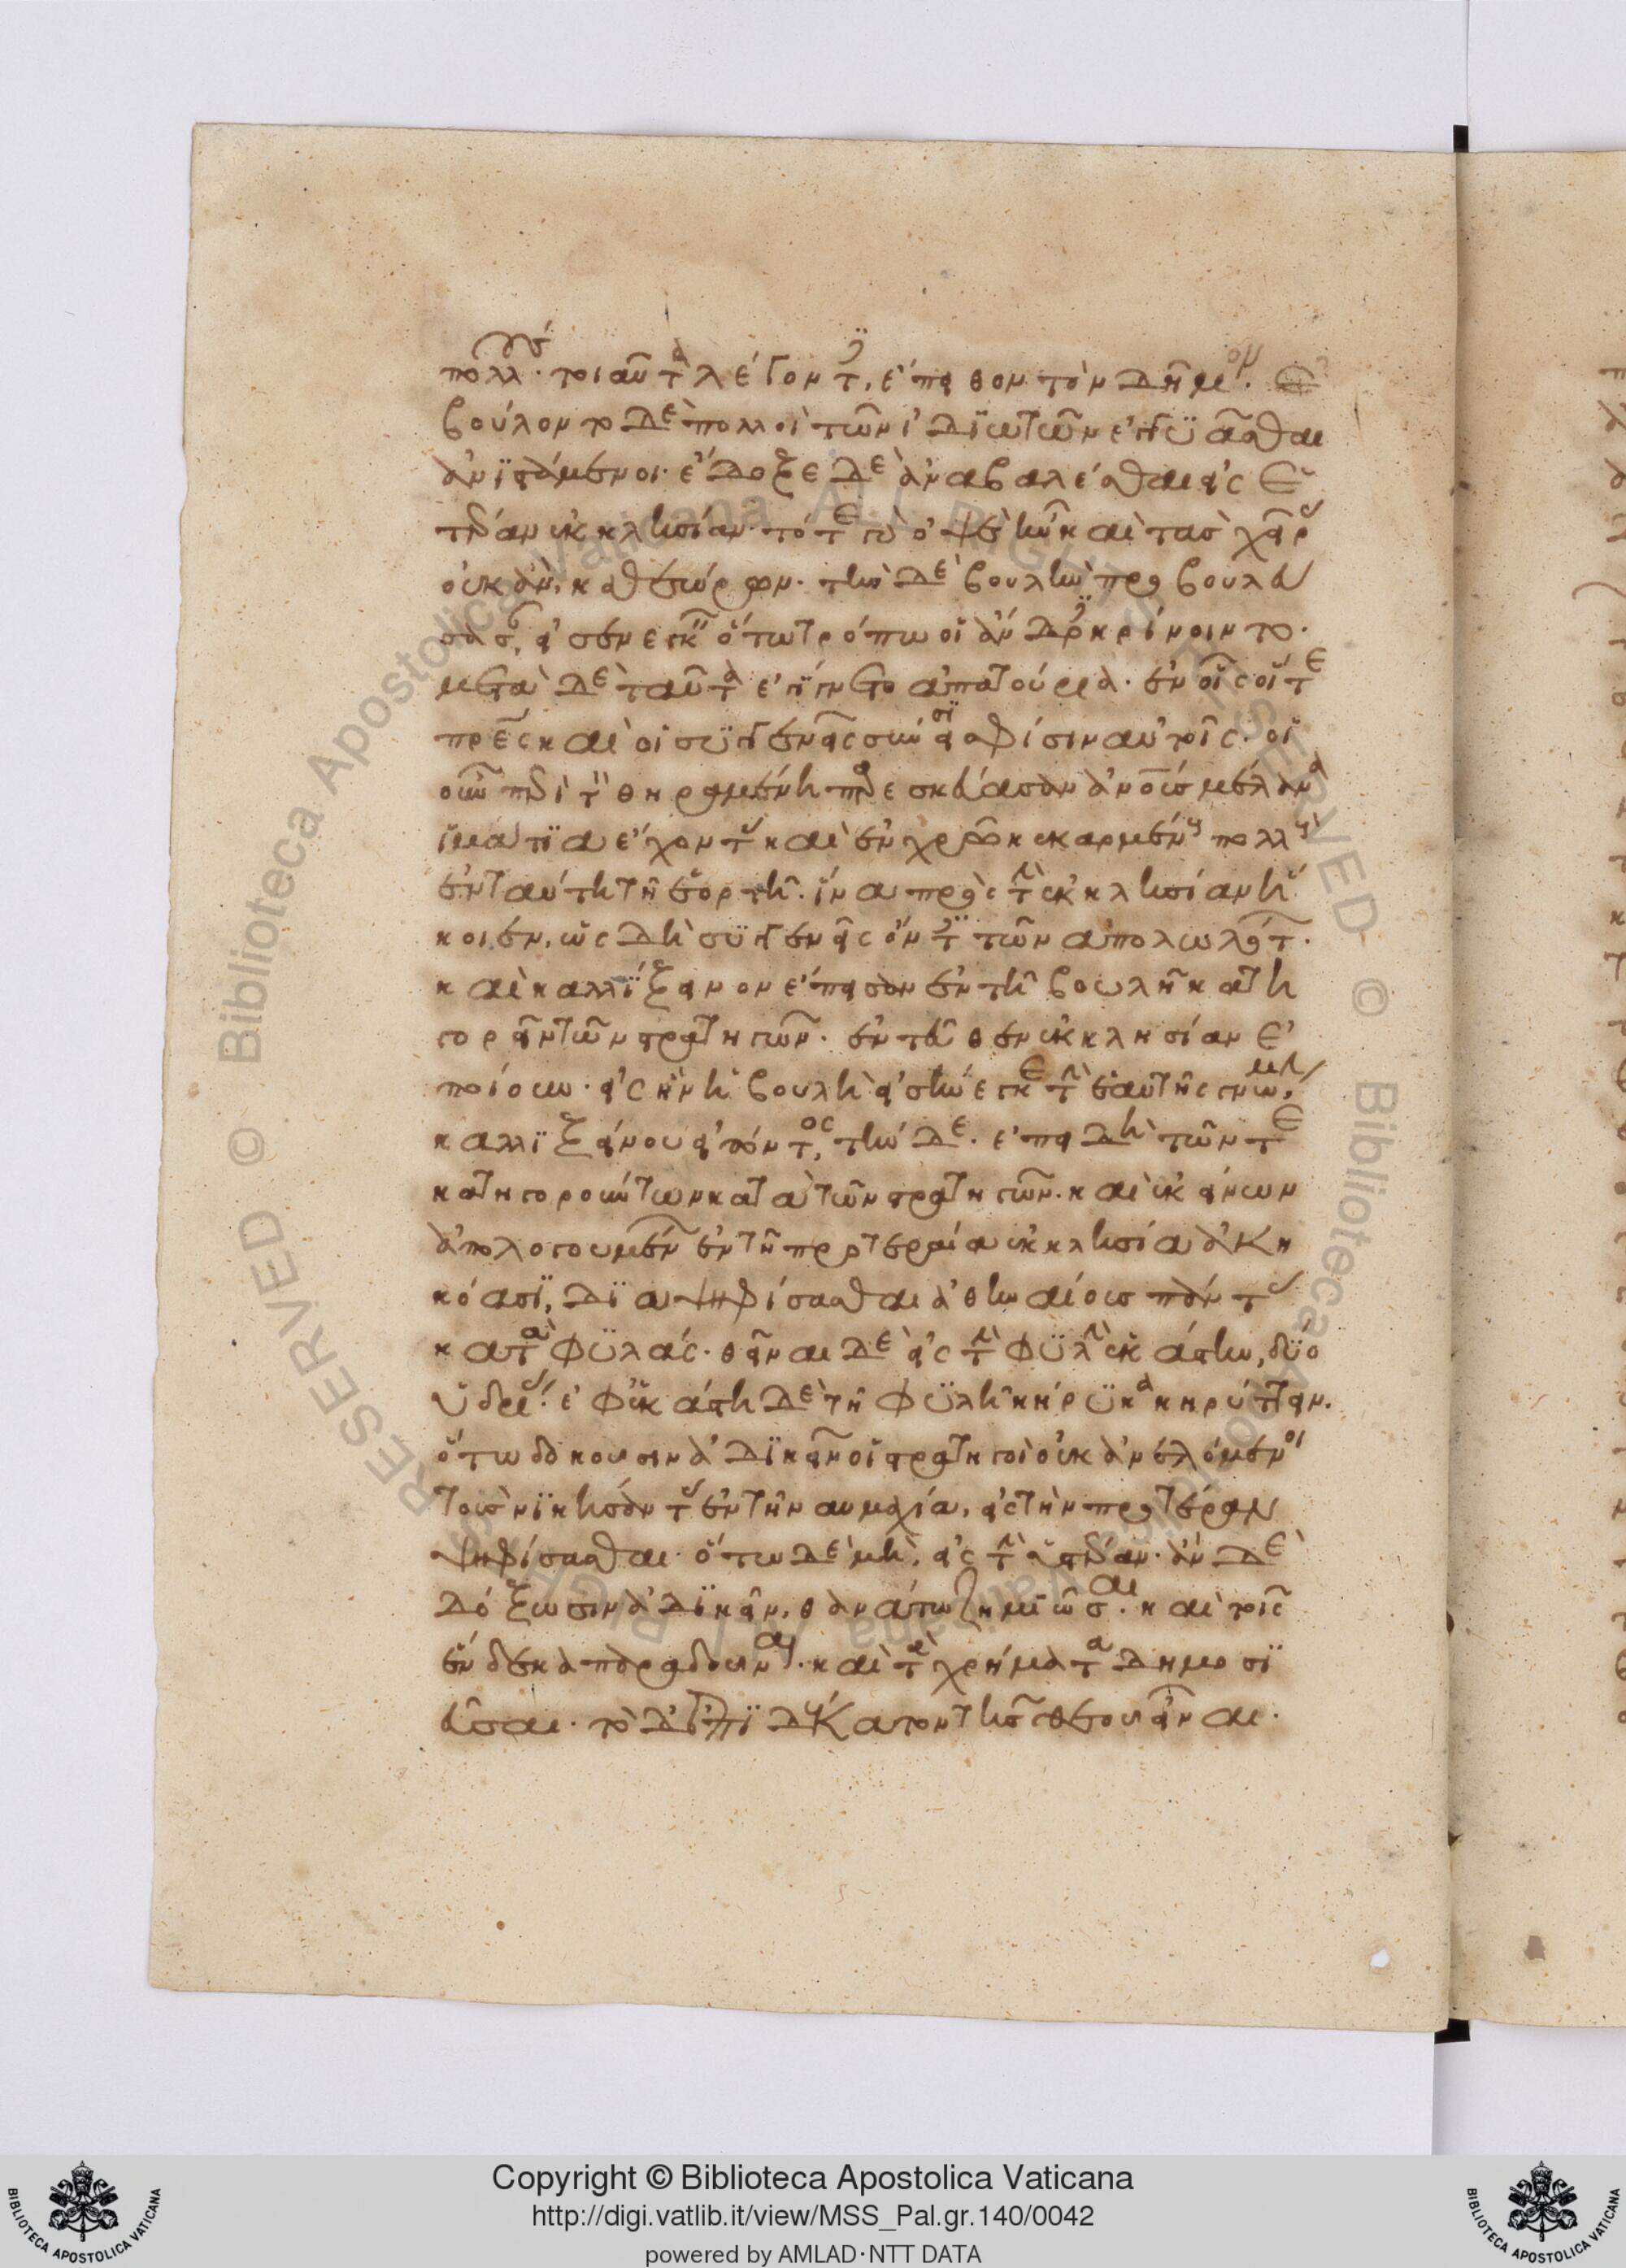 πολλούς. τοιαῦτα λέγοντες, ἔπειθον τὸν δῆμον. ἐ
βούλοντο δὲ πολλοὶ τῶν ἰδιωτῶν ἐγγυᾶσθαι
ἀνιστάμενοι. ἔδοξε δὲ ἀναβαλέσθαι εἰς ἑ
τέραν ἐκκλησίαν. τότε γὰρ ὀψὲ ἦν καὶ τὰς χεῖρας
οὐκ ἂν καθεώρων. τὴν δὲ βουλὴν προβουλεύ
σασαν εἰσενεγκεῖν ὅτῳ τρόπῳ οἱ ἄνδρες κρίνοιντο.
μετὰ δὲ ταῦτα ἐγίγνετο ἀπατούρια. ἐν οἷς οἵ τε
πατέρες καὶ οἱ συγγενεῖς σύνεισι σφίσιν αὐτοῖς. οἱ
οὖν περὶ τὸν θηραμένη παρεσκεύασαν ἀνθρώπους μέλανα
ἱμάτια ἔχοντας καὶ ἐν χρῷ κεκαρμένους πολλοὺς
ἐν ταύτῃ τῇ ἑορτῇ. ἵνα πρὸς τὴν ἐκκλησίαν ἥ
κοιεν, ὡς δὴ συγγενεῖς ὄντες τῶν ἀπολωλότων.
καὶ καλλίξεινον ἔπεισαν ἐν τῇ βουλῇ κατη
γορεῖν τῶν στρατηγῶν. ἐντεῦθεν ἐκκλησίαν ἐ
ποίουν. εἰς ἣν ἡ βουλὴ εἰσήνεγκε τὴν ἑαυτῆς γνώμην,
καλλιξείνου εἰπόντος, τήνδε. ἐπειδὴ τῶν τε
κατηγορούντων κατὰ τῶν στρατηγῶν. καὶ ἐκείνων
ἀπολογουμένων ἐν τῇ προτεραίᾳ ἐκκλησίᾳ ἀκη
κόασι, διαψηφίσασθαι ἀθηναίους πάντας
κατὰ φυλάς. θεῖναι δὲ εἰς τὴν φυλὴν ἑκάστην, δύο
ὑδρίας. ἐφ' ἑκάστῃ δὲ τῇ φυλῇ κήρυκα κηρύττειν.
ὅτῳ δοκοῦσιν ἀδικεῖν οἱ στρατηγοὶ οὐκ ἀνελόμενοι
τοὺς νικήσαντας ἐν τῇ ναυμαχίᾳ, εἰς τὴν προτέραν
ψηφίσασθαι. ὅτῳ δὲ μή, εἰς τὴν ὑστέραν. ἂν δὲ
δόξωσιν ἀδικεῖν, θανάτῳ ζημιῶσαι. καὶ τοῖς
ἕνδεκα παραδοῦναι. καὶ τὰ χρήματα δημοσι
εῦσαι. τὸ δ' ἐπιδέκατον τῆς θεοῦ εἶναι.
Copyright © Biblioteca Apostolica Vaticana
http://digi.vatlib.it/view/MSS_Pal.gr.140/0042
powered by AMLAD·NTT DATA